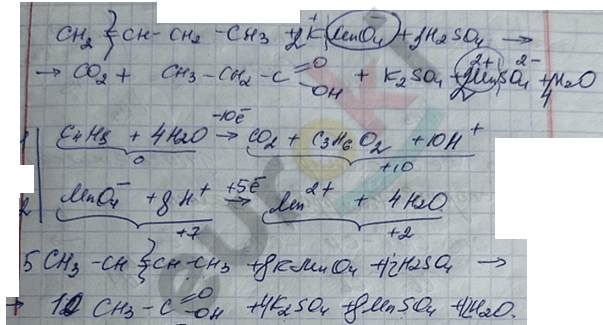 CH2 = CH - CH2 - CH3 + 2K+MnO4- + 3H2SO4 →
→ CO2 + CH3 - CH2 - C =O -OH + K2SO4 + 2Mn2+SO4 2- + 4H2O
1 | C4H8 + 4H2O -10ē → CO2 + C3H6O2 + 10H+
0 +10
2 | MnO4- + 8H+ +5ē → Mn2+ + 4H2O
+7 +2
5 CH3 - CH = CH - CH3 + 8KMnO4 + 12H2SO4 →
→ 10 CH3 - C =O -OH + 4K2SO4 + 8MnSO4 + 12H2O.